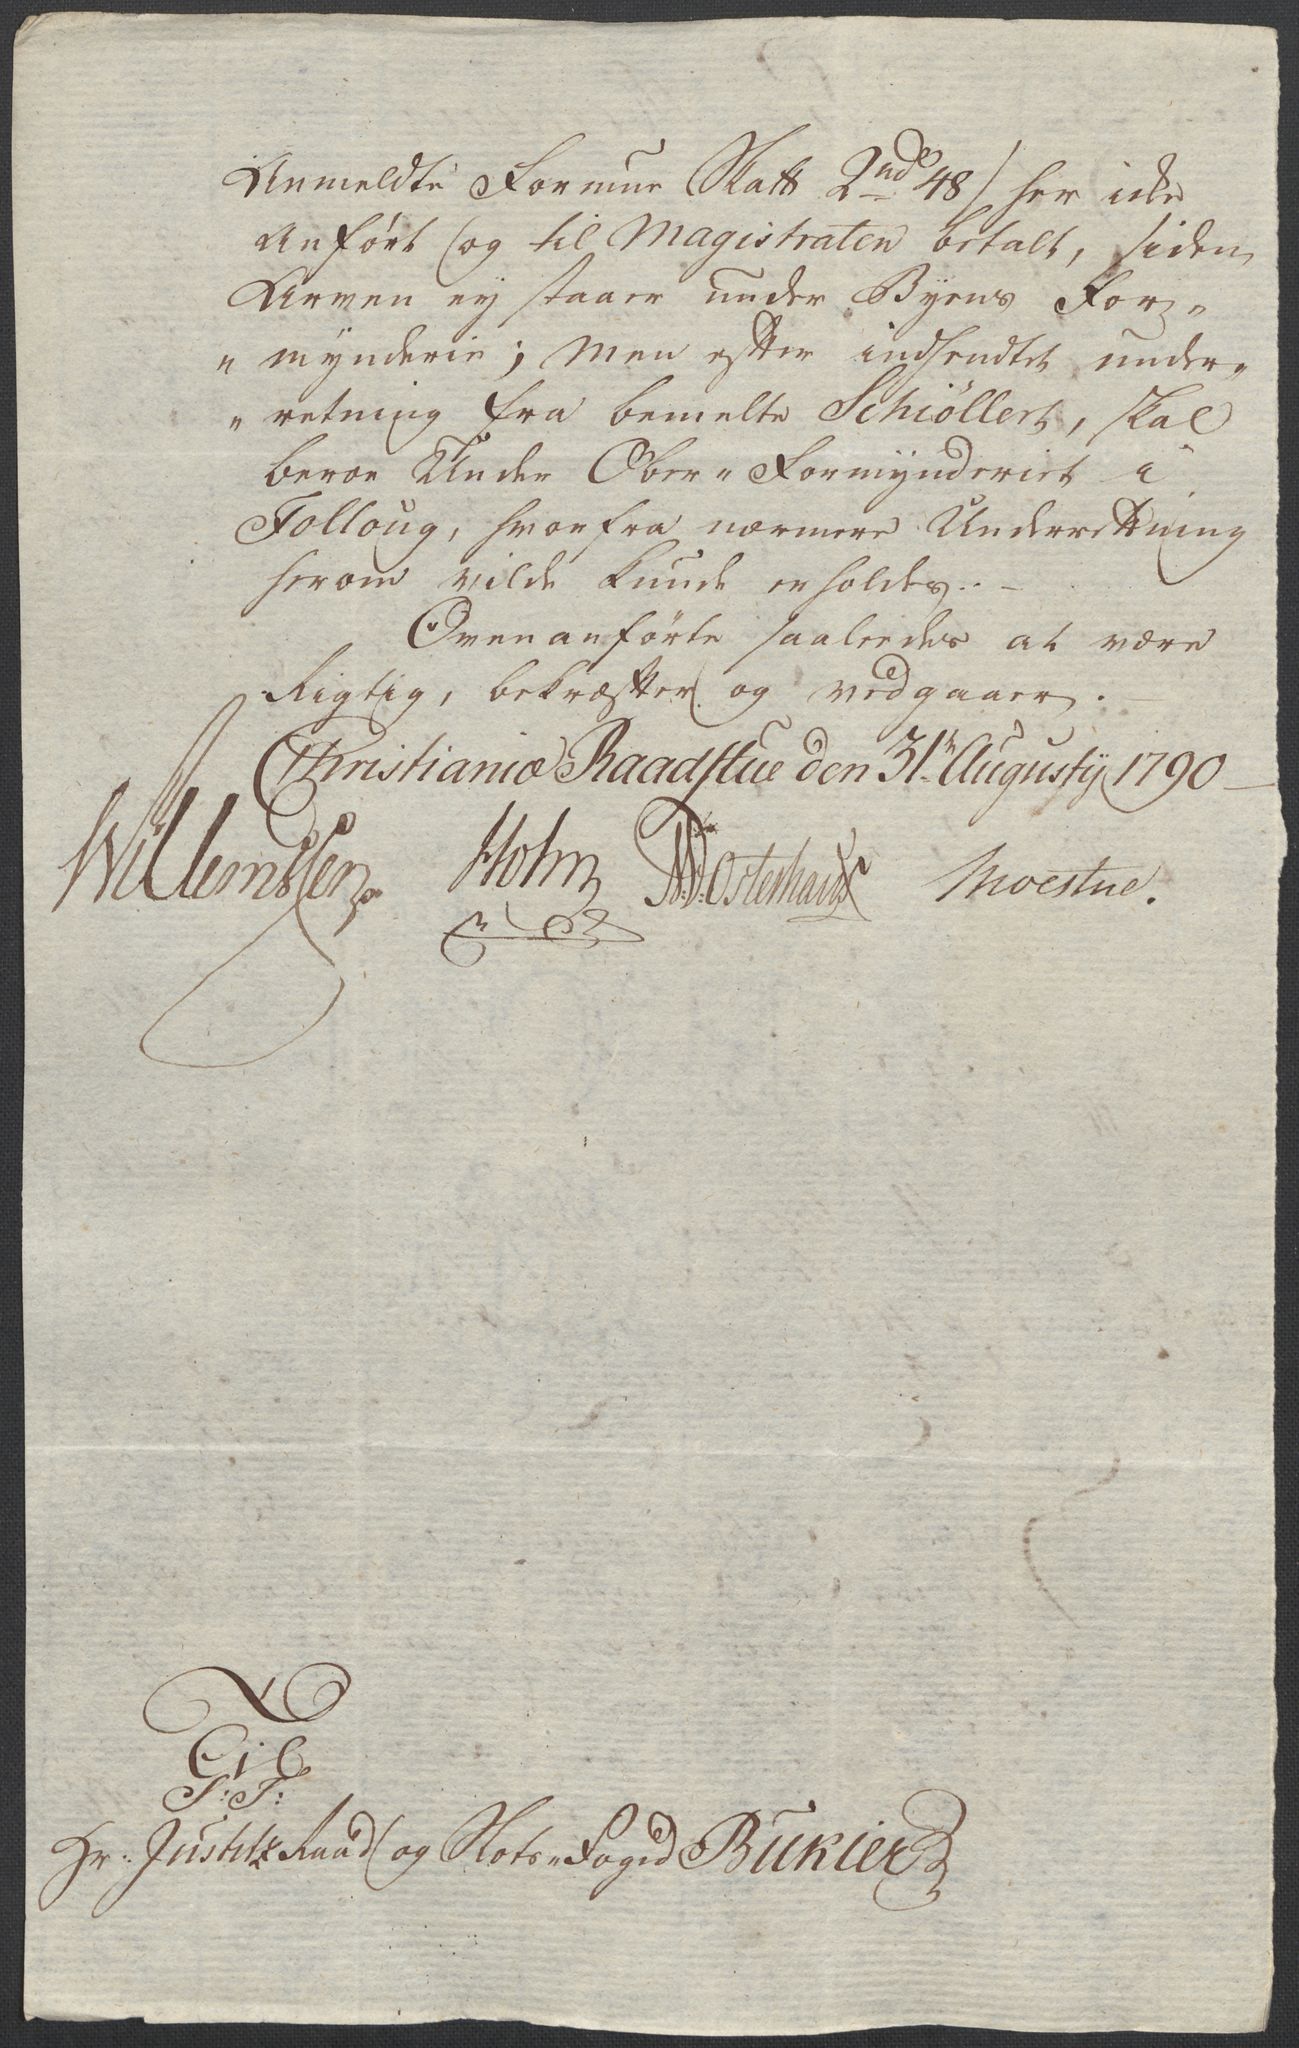 Anmeldte Formue Skatt 2 rd 48 / her icke
Anført og til Magistraten betalt, siden
Arven ey staaer under Byens For-
"mynderie; Men efter indsendte under-
"retning fra bemelte Schiøllert, skal
beroe Under Ober-Formynderiet i
Folloug, hvorfra nærmere Underretning
herom vilde kunde erholdes. -
Ovenanførte saaledes at være
Rigtig, bekræfter og vedgaaer. -
Christiania Raadstue den 31te Augustij 1790
Willemssen Holm Osterhaus Moestue.
Til
S: T:
Hr. Justitz Raad og Slots-Foged Bukier